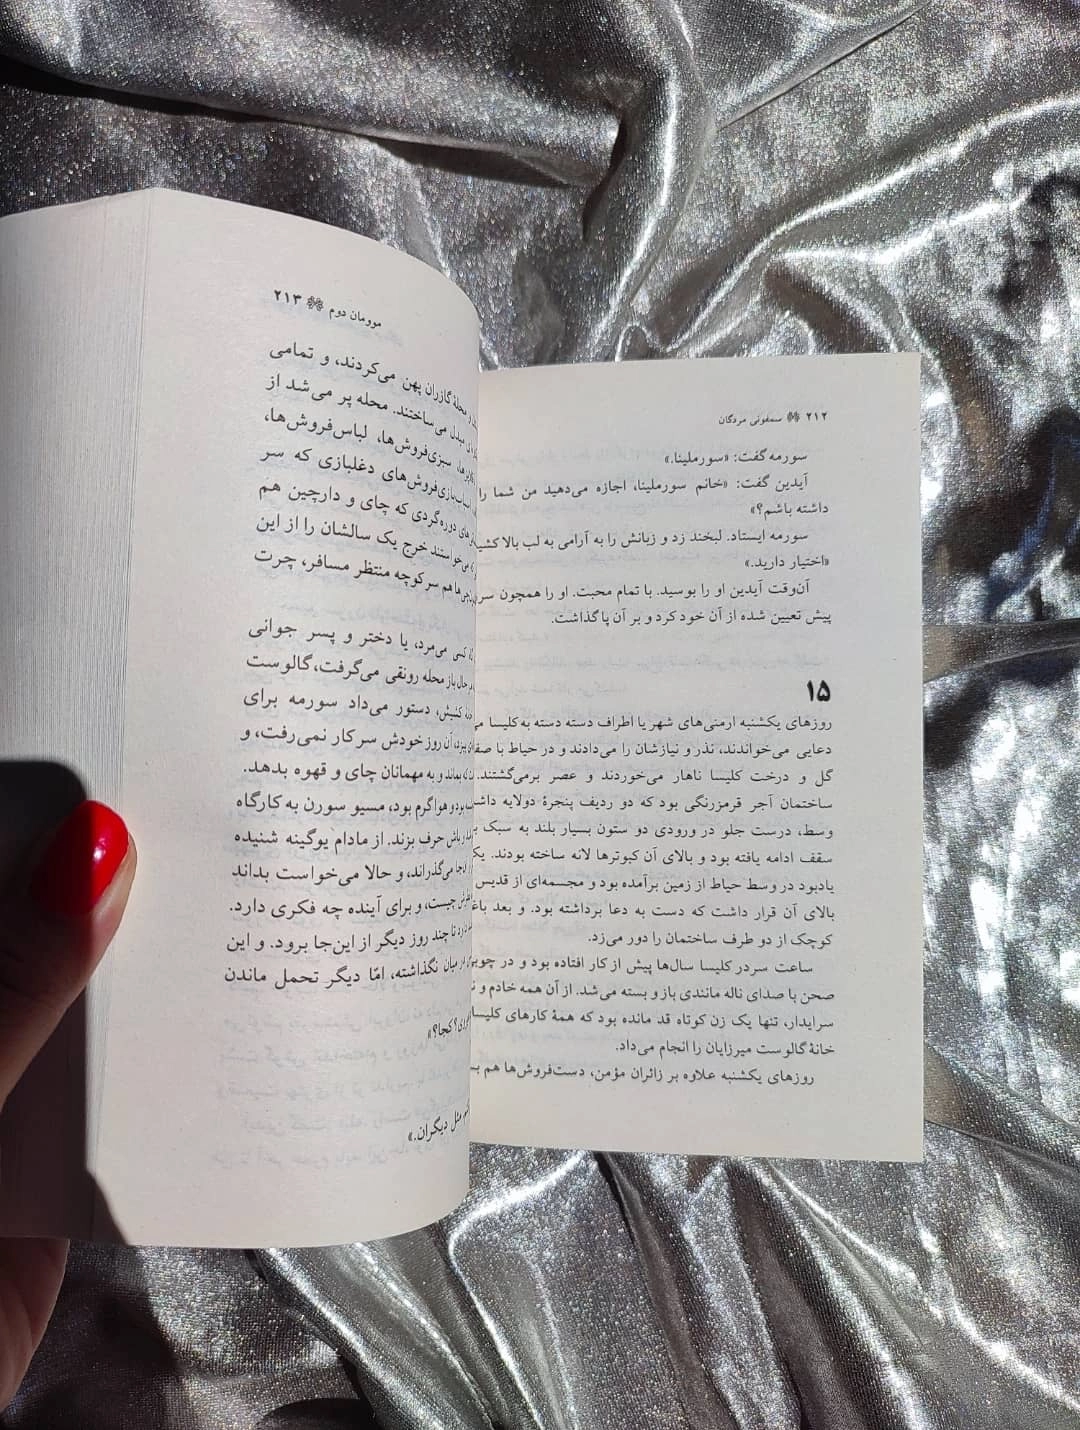 ۲۱۲ ❊ سمفونی مردگان
سورمه گفت: «سورملینا.»
آیدین گفت: «خانم سورملینا، اجازه می‌دهید من شما را
داشته باشم؟»
سورمه ایستاد. لبخند زد و زبانش را به آرامی به لب بالا
«اختیار دارید.»
آن‌وقت آیدین او را بوسید. با تمام محبت. او را همچون
پیش تعیین شده از آن خود کرد و بر آن پا گذاشت.
۱۵
روزهای یکشنبه ارمنی‌های شهر یا اطراف دسته دسته به کلیسا
دعایی می‌خواندند، نذر و نیازشان را می‌دادند و در حیاط با
گل و درخت کلیسا ناهار می‌خوردند و عصر برمی‌گشتند.
ساختمان آجر قرمزرنگی بود که دو ردیف پنجرهٔ دولابه
وسط، درست جلو در ورودی دو ستون بسیار بلند به سبک
سقف ادامه یافته بود و بالای آن کبوترها لانه ساخته بودند.
یادبود در وسط حیاط از زمین برآمده بود و مجسمه‌ای از قدیس
بالای آن قرار داشت که دست به دعا برداشته بود. و بعد
کوچک از دو طرف ساختمان را دور می‌زد.
ساعت سردر کلیسا سال‌ها پیش از کار افتاده بود و در
صحن با صدای ناله مانندی باز و بسته می‌شد. از آن همه خادم و
سرایدار، تنها یک زن کوتاه قد مانده بود که همهٔ کارهای کلیسا
خانهٔ گالوست میرزایان را انجام می‌داد.
روزهای یکشنبه علاوه بر زائران مؤمن، دست‌فروش‌ها هم
موومان دوم ❊ ۲۱۳
محلهٔ گازران پهن می‌کردند، و تمامی
مبدل می‌ساختند. محله پر می‌شد از
سبزی‌فروش‌ها، لباس‌فروش‌ها،
اسباب‌بازی‌فروش‌های دغلبازی که سر
دوره‌گردی که چای و دارچین هم
می‌خواستند خرج یک سالشان را از این
هم سر کوچه منتظر مسافر، چرت
کسی می‌مرد، یا دختر و پسر جوانی
حال باز محله رونقی می‌گرفت، گالوست
کشیش، دستور می‌داد سورمه برای
آن روز خودش سر کار نمی‌رفت، و
بماند و به مهمانان چای و قهوه بدهد.
بود و هوا گرم بود، مسیو سورن به کارگاه
باش حرف بزند. از مادام یوگینه شنیده
می‌گذراند، و حالا می‌خواست بداند
چیست، و برای آینده چه فکری دارد.
تا چند روز دیگر از این‌جا برود. و این
در میان نگذاشته، امّا دیگر تحمل ماندن
کجا؟»
مثل دیگران.»